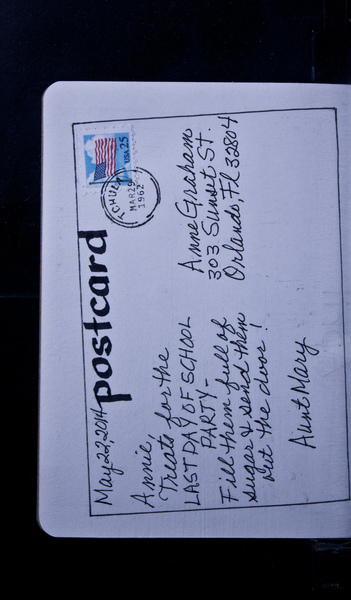 May 22, 2014
postcard
USA 25
MAR 29
1962
Annie,
Treats for the
LAST DAY OF SCHOOL
PARTY-
Fill them full of
sugar & send them
out the door!
Aunt Mary
Anne Graham
303 Sunset St.
Orlando, FL 32804